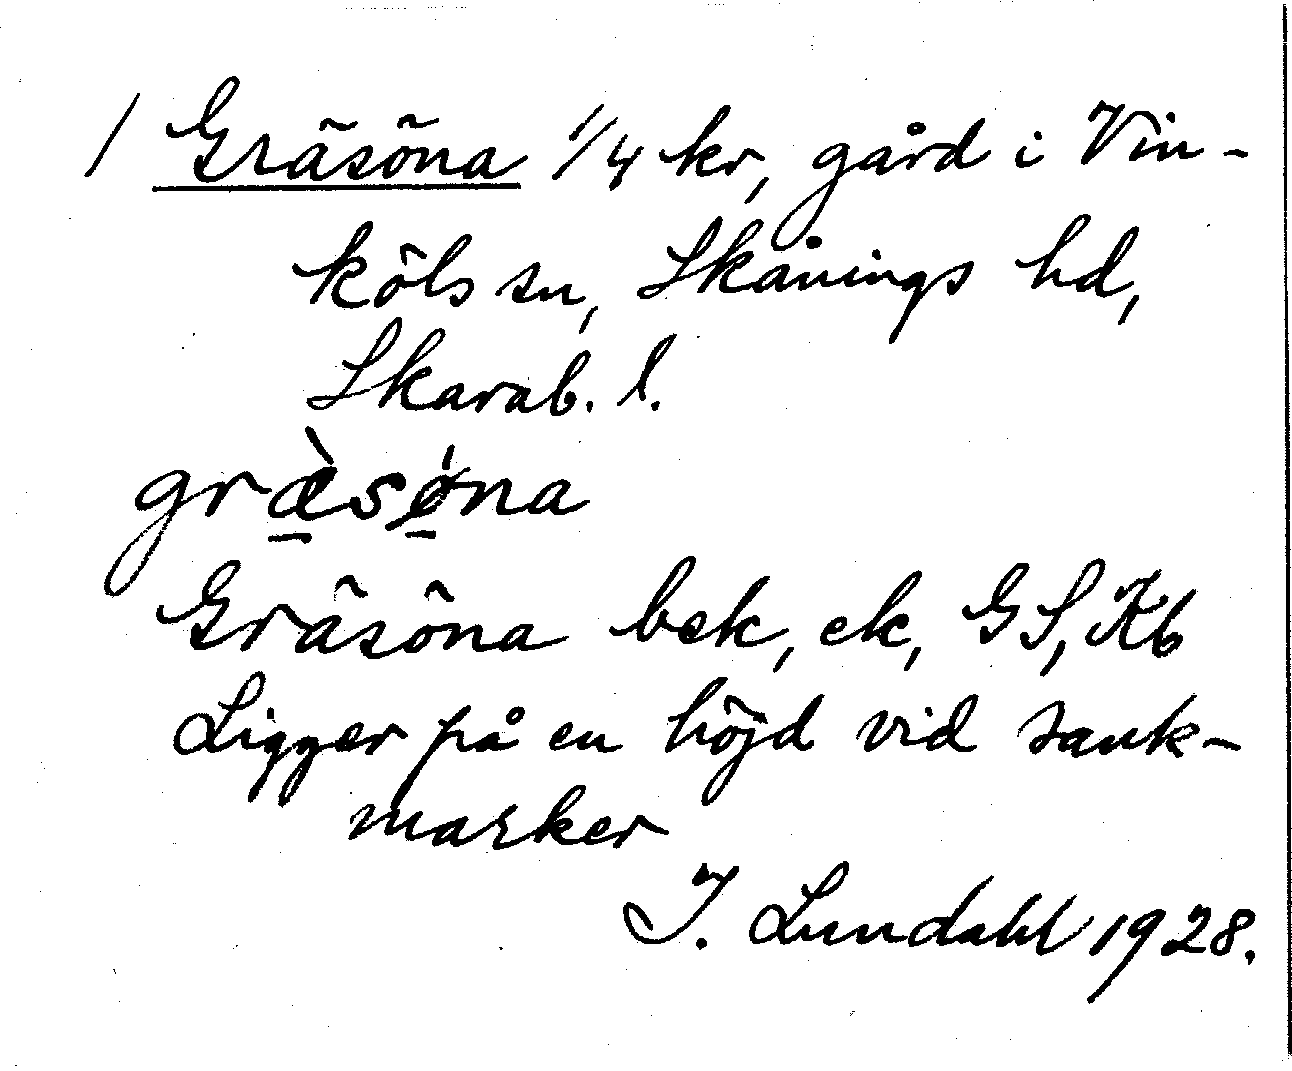 / Gräsöna 1/4 kr, gård i Vin-
köls sn, Skånings hd,
Skarab. l.
græ̀sǿna
Gräsöna bek, ek, GS, Kb
Ligger på en höjd vid sank-
marker
I. Lundahl 1928.